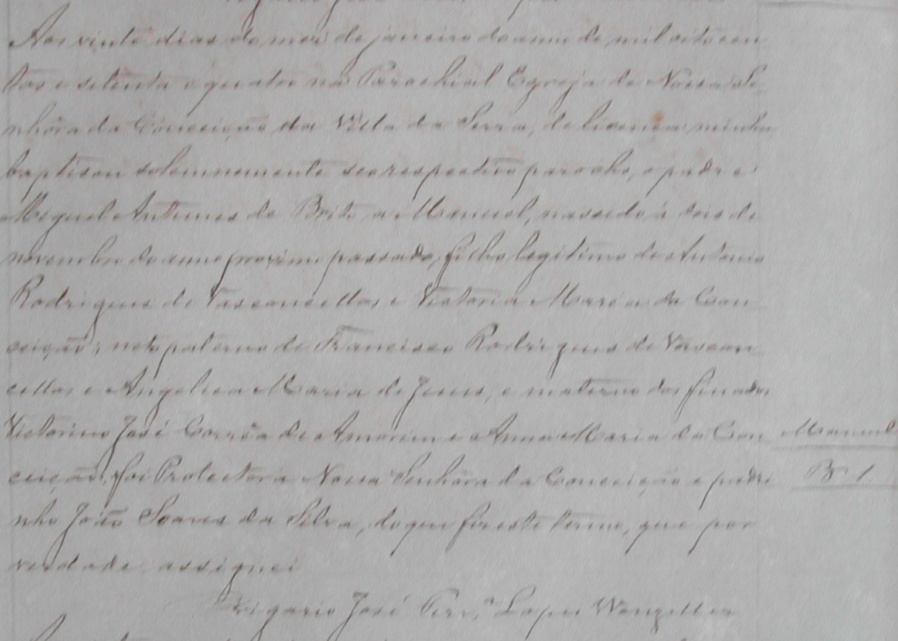 Aos vinte dias do mez de janeiro do anno de mil oitocen
tos e setenta e quatro na Parochial Egreja de Nossa Se
nhora da Conceição da Villa da Serra, de licença minha
baptisou solemnemente seo respectivo parocho, o padre
Meguel Antunes de Brito a Manoel, nascido á seis de
novembro do anno proximo passado, filho legitimo de Antonio
Rodrigues de Vasconcellos e Victoria Maria da Con
ceição; neto paterno de Francisco Rodrigues de Vascon
cellos e Angelica Maria de Jesus, e materno dos finados
Victorino José Corrêa de Amorim e Anna Maria da Con
ceição, foi Protectora Nossa Senhora da Conceição e padri
nho João Soares da Silva, do que fiz este termo, que por
verdade assignei
Vigario José Ferr.ª Lopes Wanzeller
Manoel
B 1